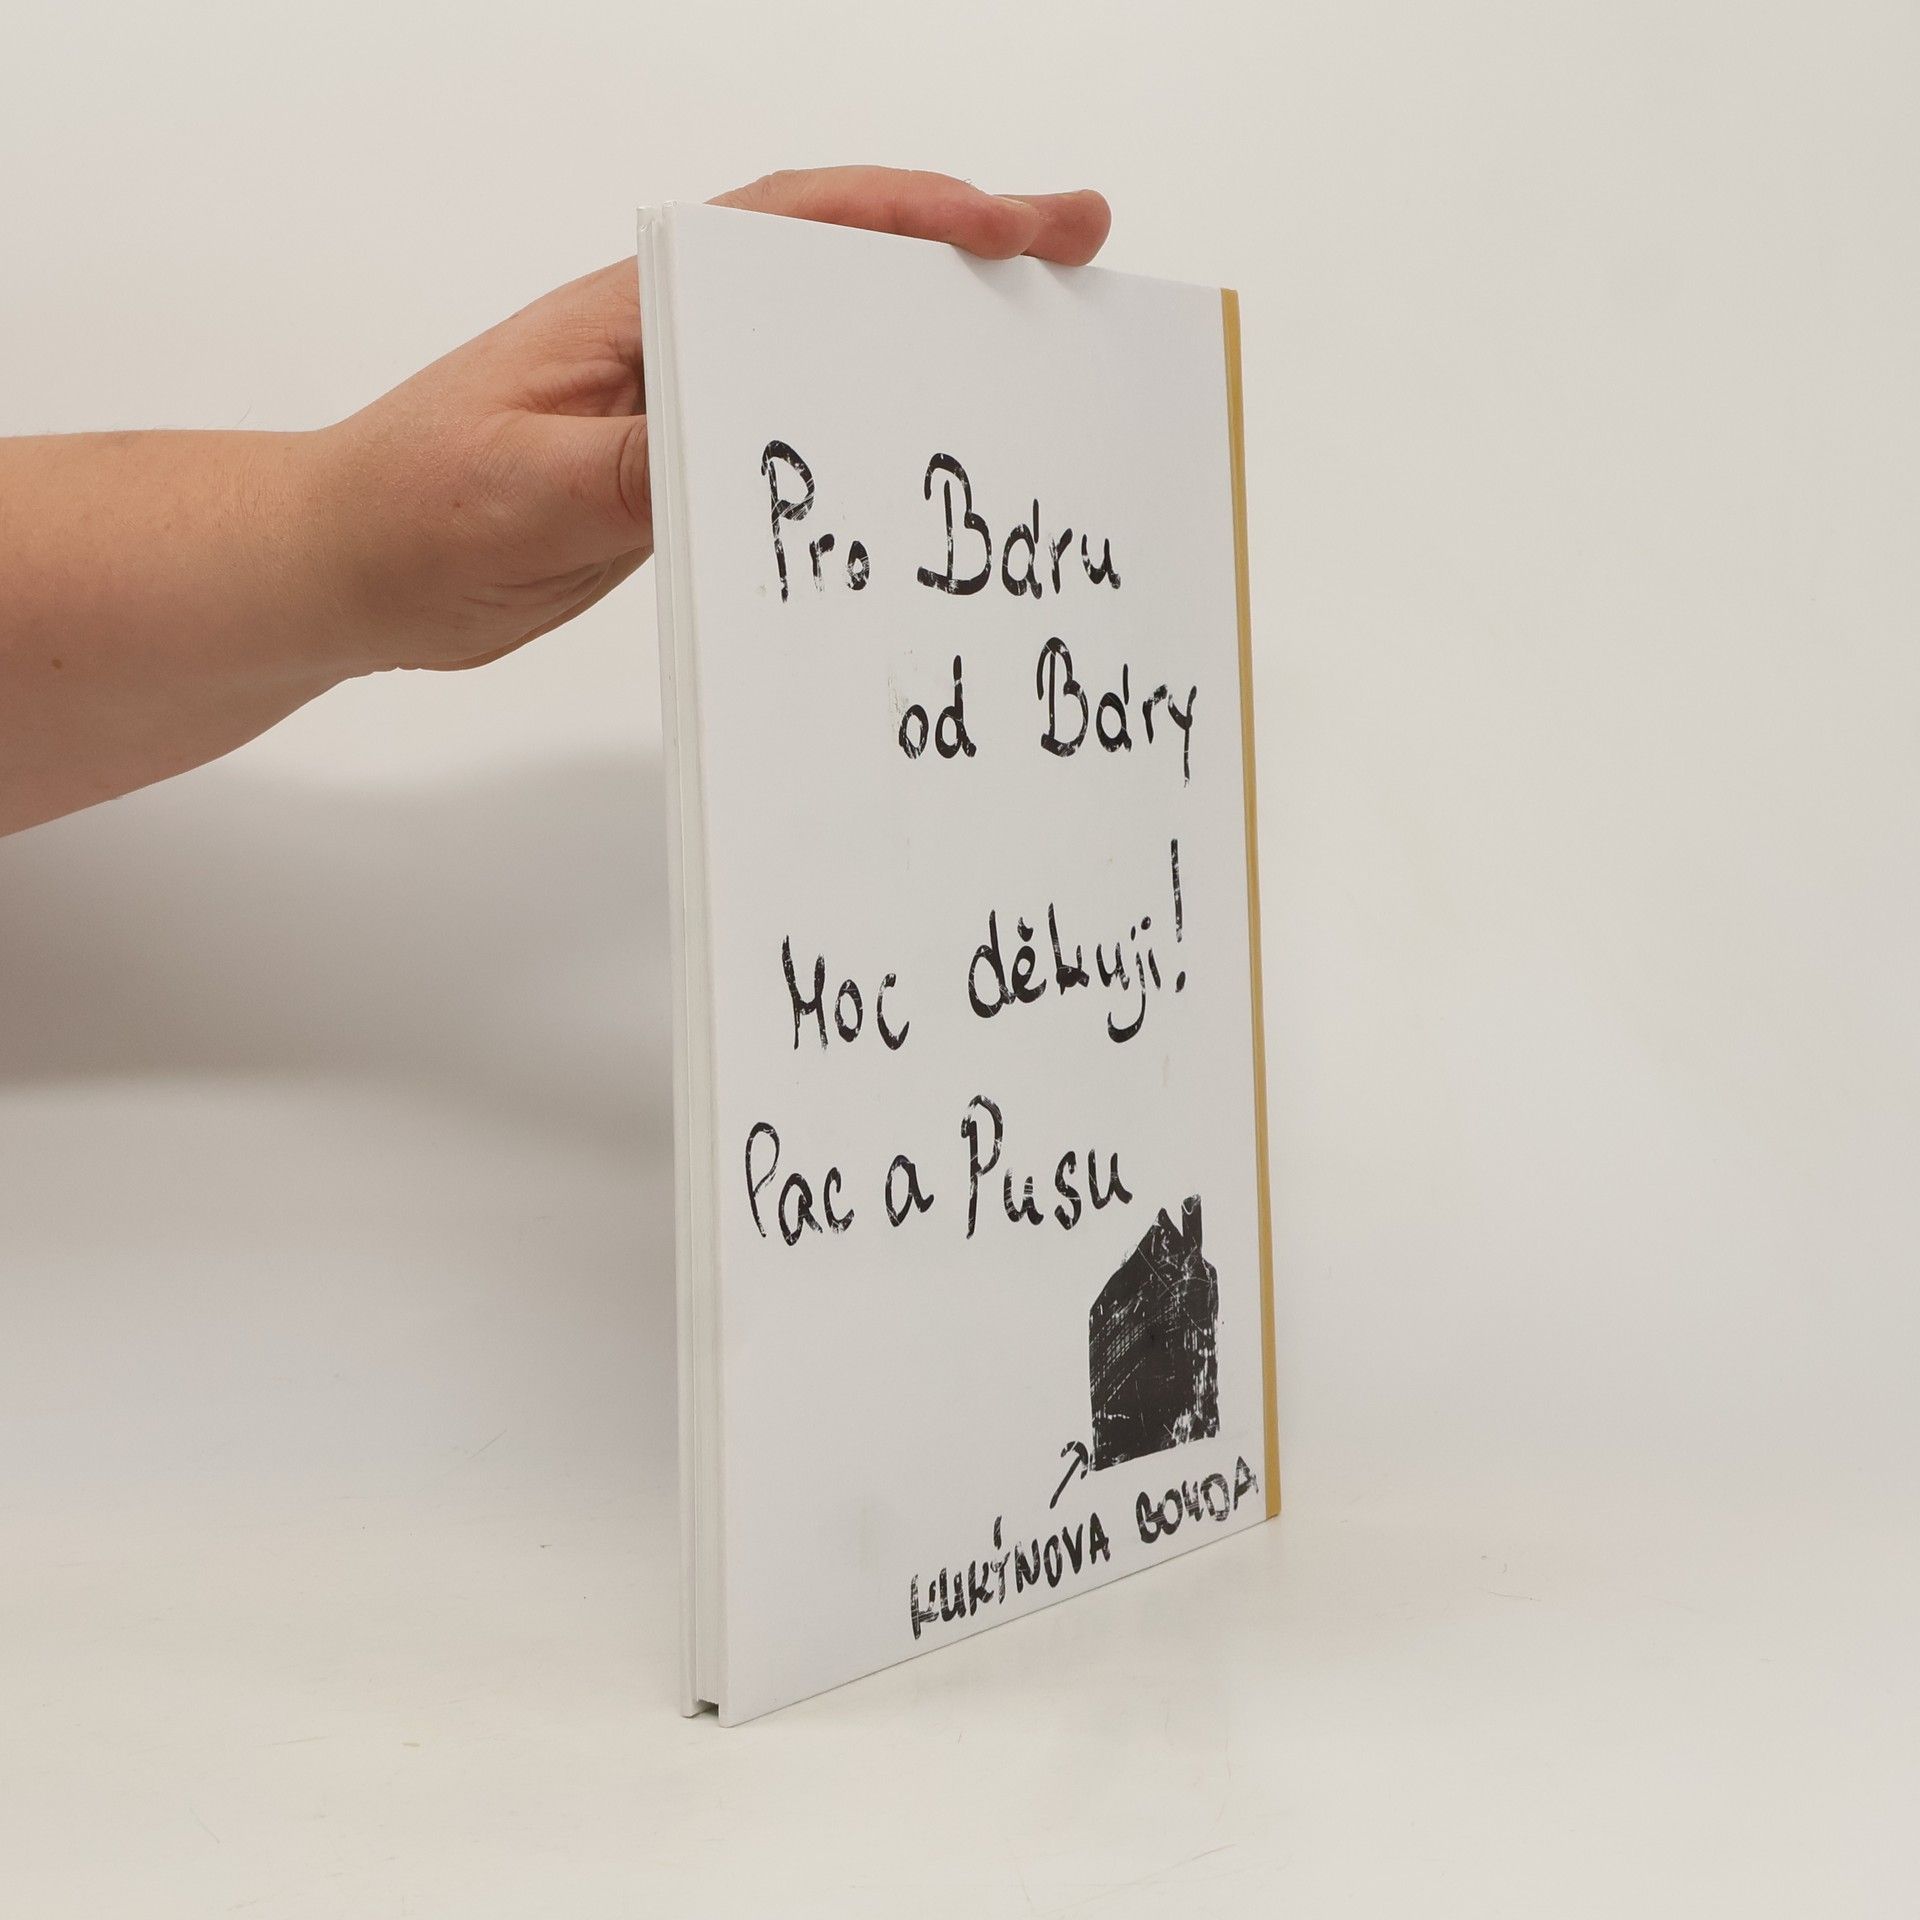 Pro Báru
od Báry
Moc děkuji!
Pac a Pusu
KUKÝNOVA BOUDA